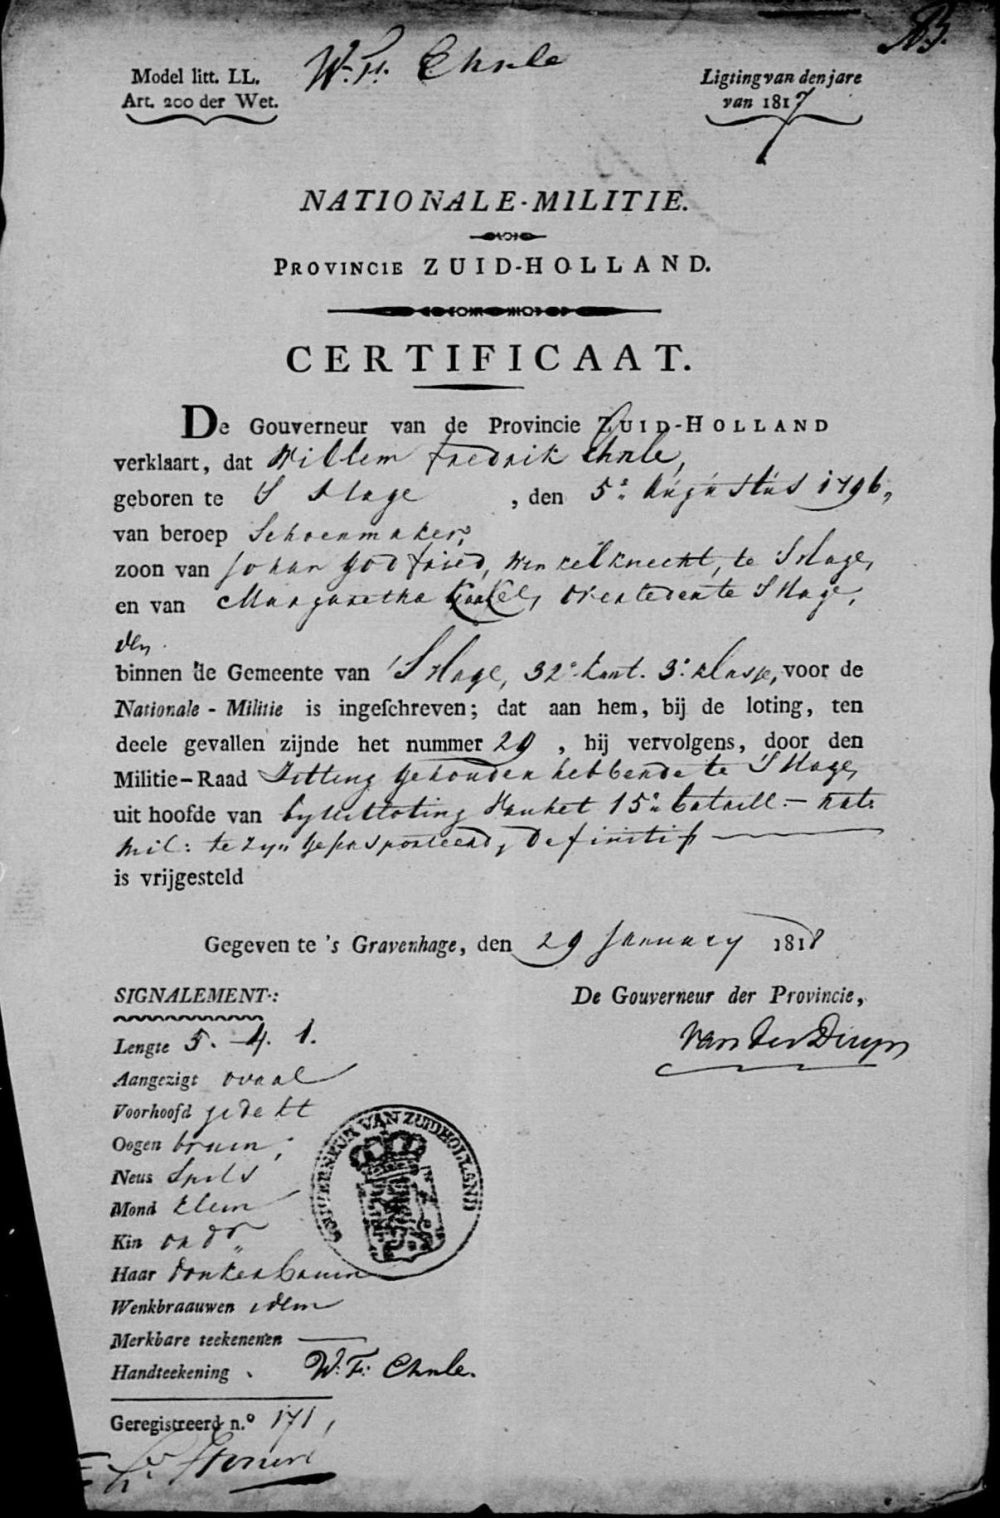 W. F. Ehnle
Model litt. LL.
Art. 200 der Wet.
Ligting van den jare
van 1817
NATIONALE-MILITIE.
PROVINCIE ZUID-HOLLAND.
CERTIFICAAT.
De Gouverneur van de Provincie ZUID-HOLLAND
verklaart, dat Willem Fredrik Ehnle,
geboren te 'S Hage, den 5e Augustus 1796,
van beroep Schoenmaker,
zoon van Johan Godfried, Winkelknecht, te 'S Hage,
en van Margaretha overleden te 'S Hage,
binnen de Gemeente van 'S Hage, 32e kant. 3e klasse, voor de
Nationale-Militie is ingeschreven; dat aan hem, bij de loting, ten
deele gevallen zijnde het nummer 29, hij vervolgens, door den
Militie-Raad Zitting gehouden hebbende te 'S Hage,
uit hoofde van by uitloting van het 15e bataill. nat.
mil: te zyn gepasporteerd, Definitif
is vrijgesteld
Gegeven te 's Gravenhage, den 29 January 1818
SIGNALEMENT:
De Gouverneur der Provincie,
Van der Duyn
Lengte 5. 4. 1.
Aangezigt ovaal
Voorhoofd gedekt
Oogen bruin,
Neus Spits
Mond klein
Kin rond
Haar donkerbruin
Wenkbraauwen idem
Merkbare teekenenen —
Handteekening W. F. Ehnle.
GOUVERNEUR VAN ZUIDHOLLAND
Geregistreerd n.o 171,